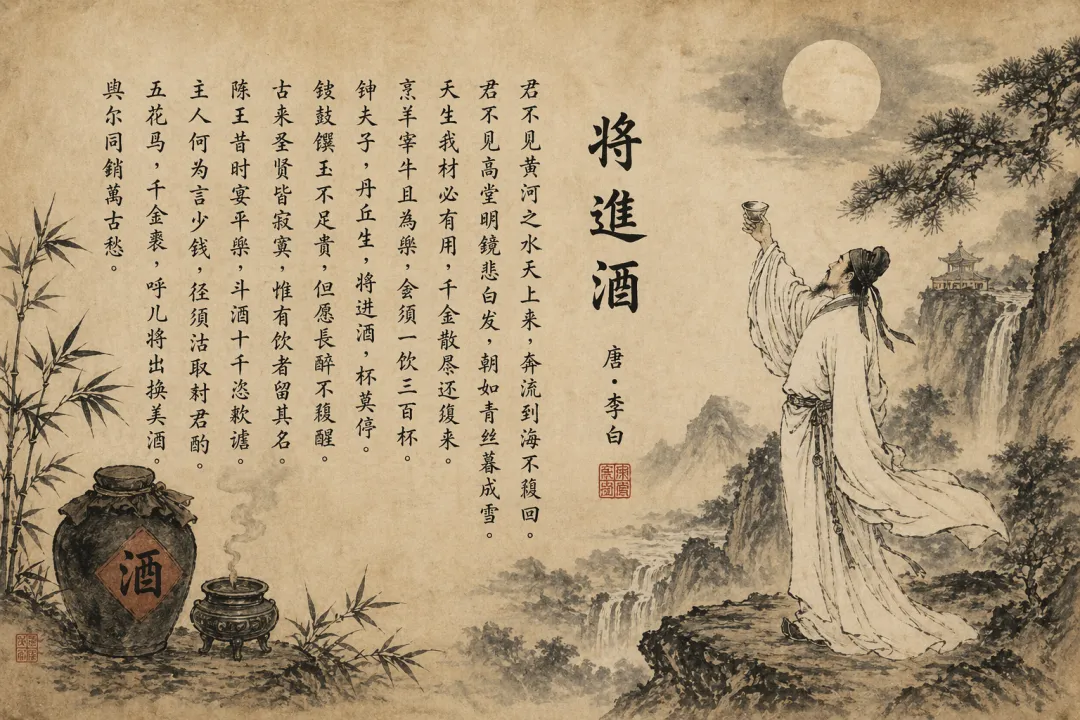 将進酒
唐·李白
君不见黄河之水天上来，奔流到海不複回。
君不见高堂明鏡悲白发，朝如青丝暮成雪。
天生我材必有用，千金散尽还復来。
烹羊宰牛且為樂，会須一饮三百杯。
钟夫子，丹丘生，将进酒，杯莫停。
钹鼓馔玉不足貴，但愿長醉不複醒。
古来圣贤皆寂寞，惟有饮者留其名。
陈王昔时宴平樂，斗酒十千恣歡謔。
主人何为言少钱，径须沽取对君酌。
五花马，千金裘，呼儿将出换美酒。
與尔同銷萬古愁。
酒